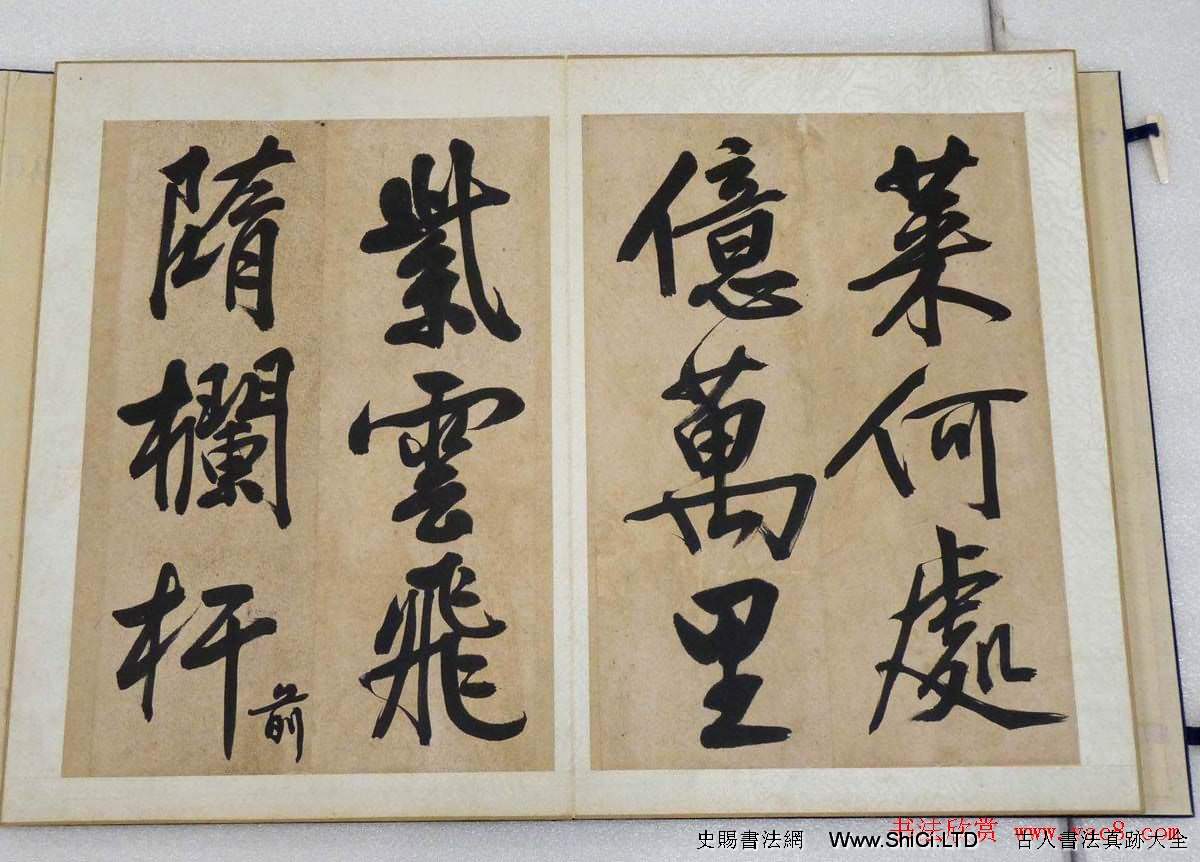 萊何處
億萬里
紫雲飛
隋欄杆前
史賜書法網 Www.ShiCi.LTD 古人書法真跡大全
书法欣赏 www.yac8.com